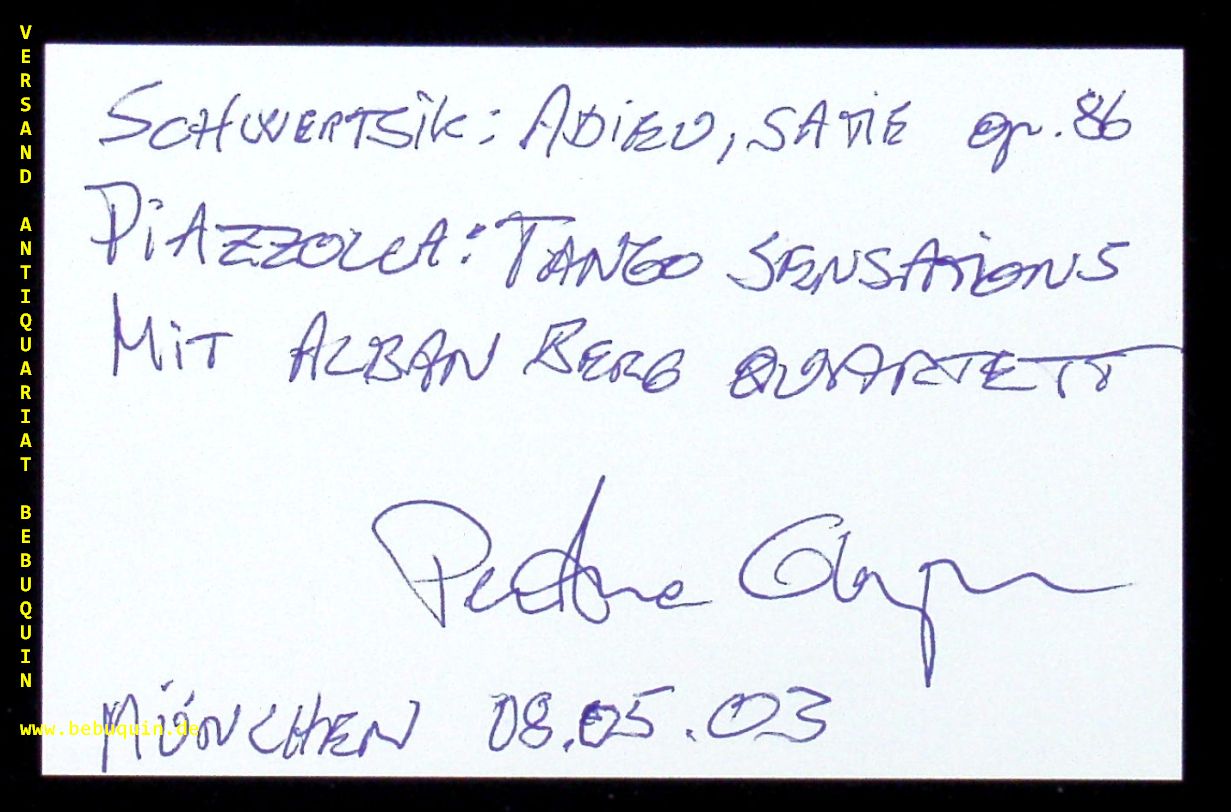 VERSAND ANTIQUARIAT BEBUQUIN
www.bebuquin.de
SCHWERTSIK: ADIEU, SATIE op. 86
PIAZZOLLA: TANGO SENSATIONS
MIT ALBAN BERG QUARTETT
MÜNCHEN 08.05.03